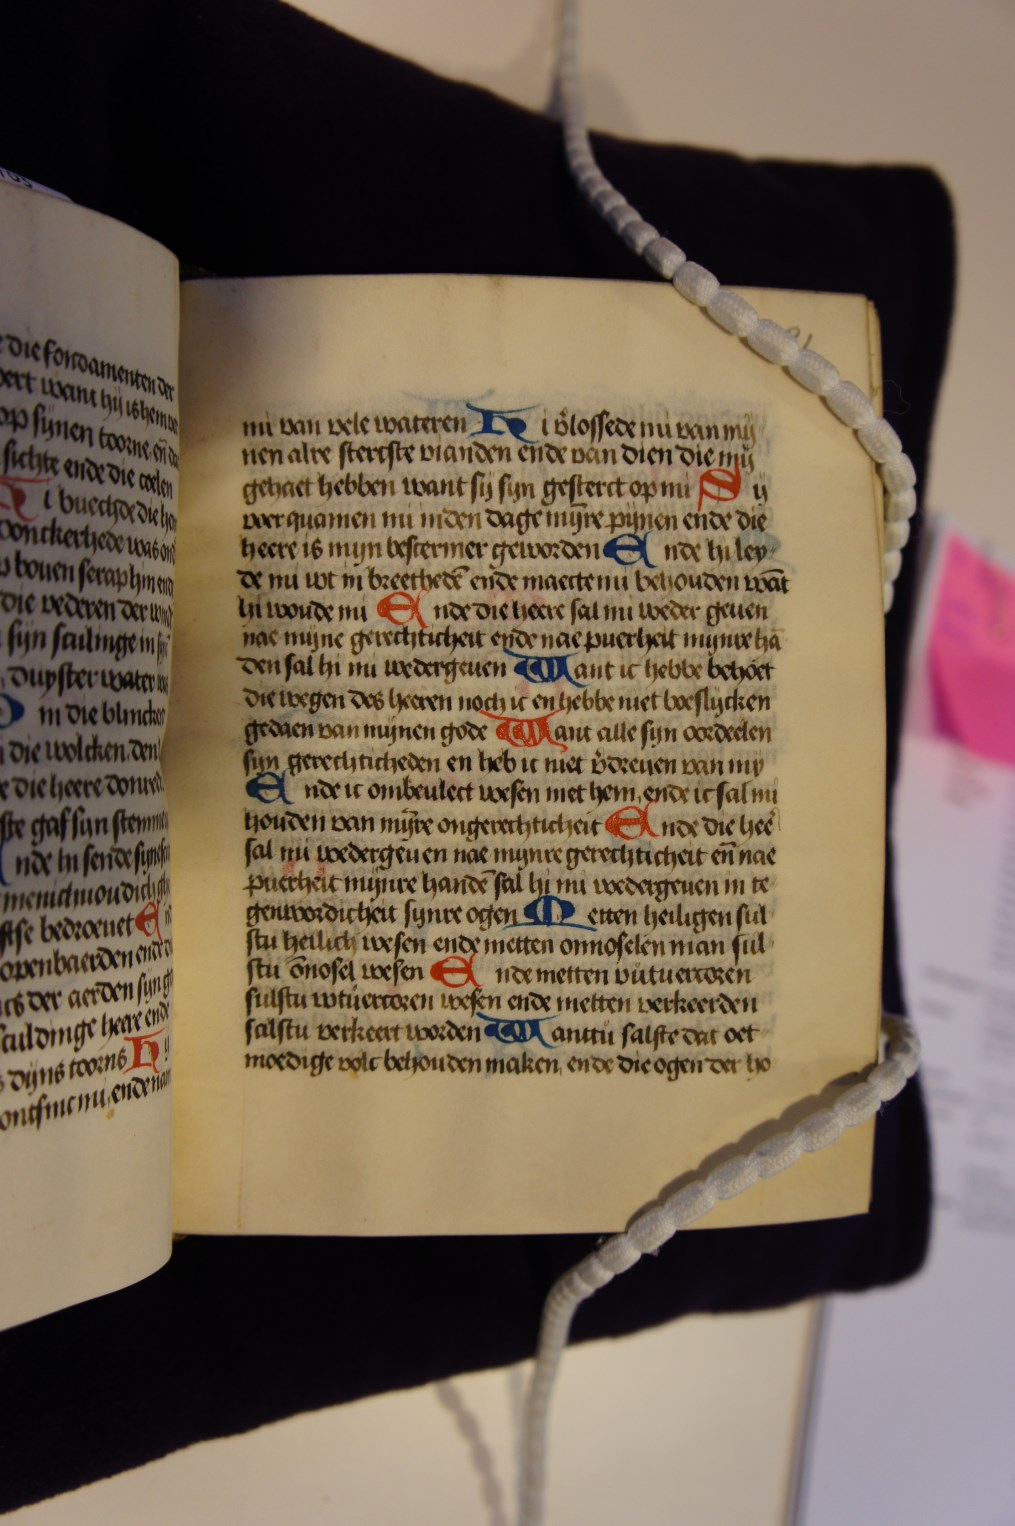 die fondamenten der
want hij is hem
op sijnen toorne en̄
sichte ende die coelen
i buechde die
donckerhede was
bouen seraphin
die vederen der
sijn scuilinge in
duyster water
in die blincken
die wolcken den
die heere donred
gaf sijn stemme
nde hi sende sijne
menichuoudich
bedroeuet E
openbaerden ende
der aerden sijn
sculdinge heere ende
dijns toorns H
ontfinc mi, ende
mi van vele wateren H i v̄lossede mi van mij
nen alre stercste vianden ende van dien die mij
gehaet hebben want sij sijn gesterct op mi S ij
voer quamen mi inden dage mijr̄e pijnen ende die
heere is mijn bescermer geworden E nde hi ley
de mi wt in breethede͞ ende maecte mi behouden wa͞t
hi woude mi E nde die heere sal mi weder geuen
nae mijne gerechticheit ende nae puerheit mijnre ha͞
den sal hi mi wedergeuen W ant ic hebbe behoet
die wegen des heeren noch ic en hebbe niet boeslijcken
gedaen van mijnen gode W ant alle sijn oordeelen
sijn gerechticheden en heb ic niet v̄dreuen van my
E nde ic ombeulect wesen met hem, ende ic sal mi
houden van mijr̄e ongerechticheit E nde die hee͞
sal mi wedergeuen nae mijnre gerechticheit en̄ nae
puerheit mijnre hande͞ sal hi mi wedergeuen in te
genwordicheit sijnre ogen M etten heiligen sul
stu heilich wesen ende metten onnoselen man sul
stu o͞nosel wesen E nde metten vutuercoren
sulstu wtuercoren wesen ende metten verkeerden
salstu verkeert worden W anttu salste dat oet
moedige volc behouden maken, ende die ogen der ho